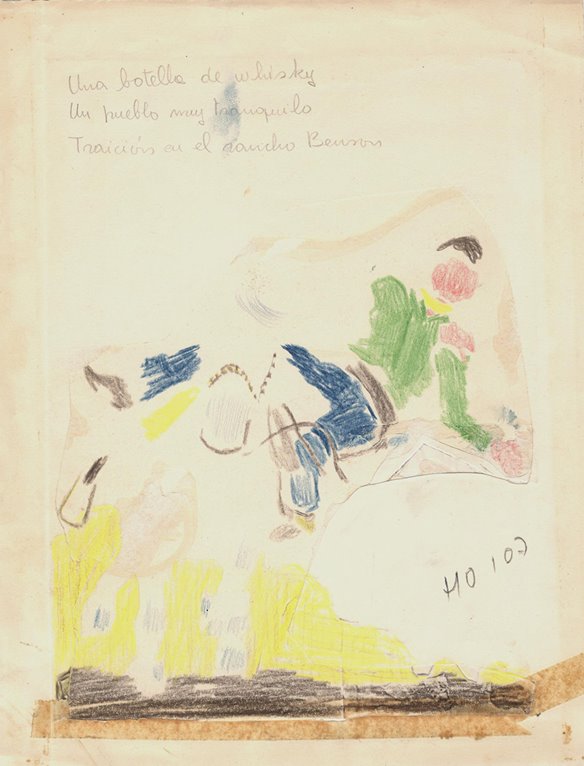 Una botella de whisky
Un pueblo muy tranquilo
Traición en el rancho Benson
HO 107